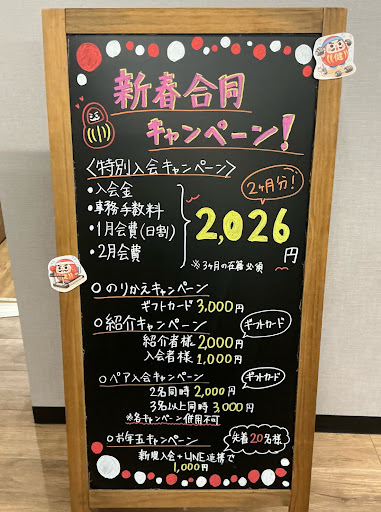 新春合同
キャンペーン!
〈特別入会キャンペーン〉
2ヶ月分!
・入会金
・事務手数料
・1月会費(日割)
・2月会費
2,026円
※3ヶ月の在籍必須
○のりかえキャンペーン
ギフトカード3,000円
○紹介キャンペーン
ギフトカード
紹介者様2,000円
入会者様1,000円
○ペア入会キャンペーン
ギフトカード
2名同時2,000円
3名以上同時3,000円
※各キャンペーン併用不可
○お年玉キャンペーン
先着20名様
新規入会+LINE連携で
1,000円